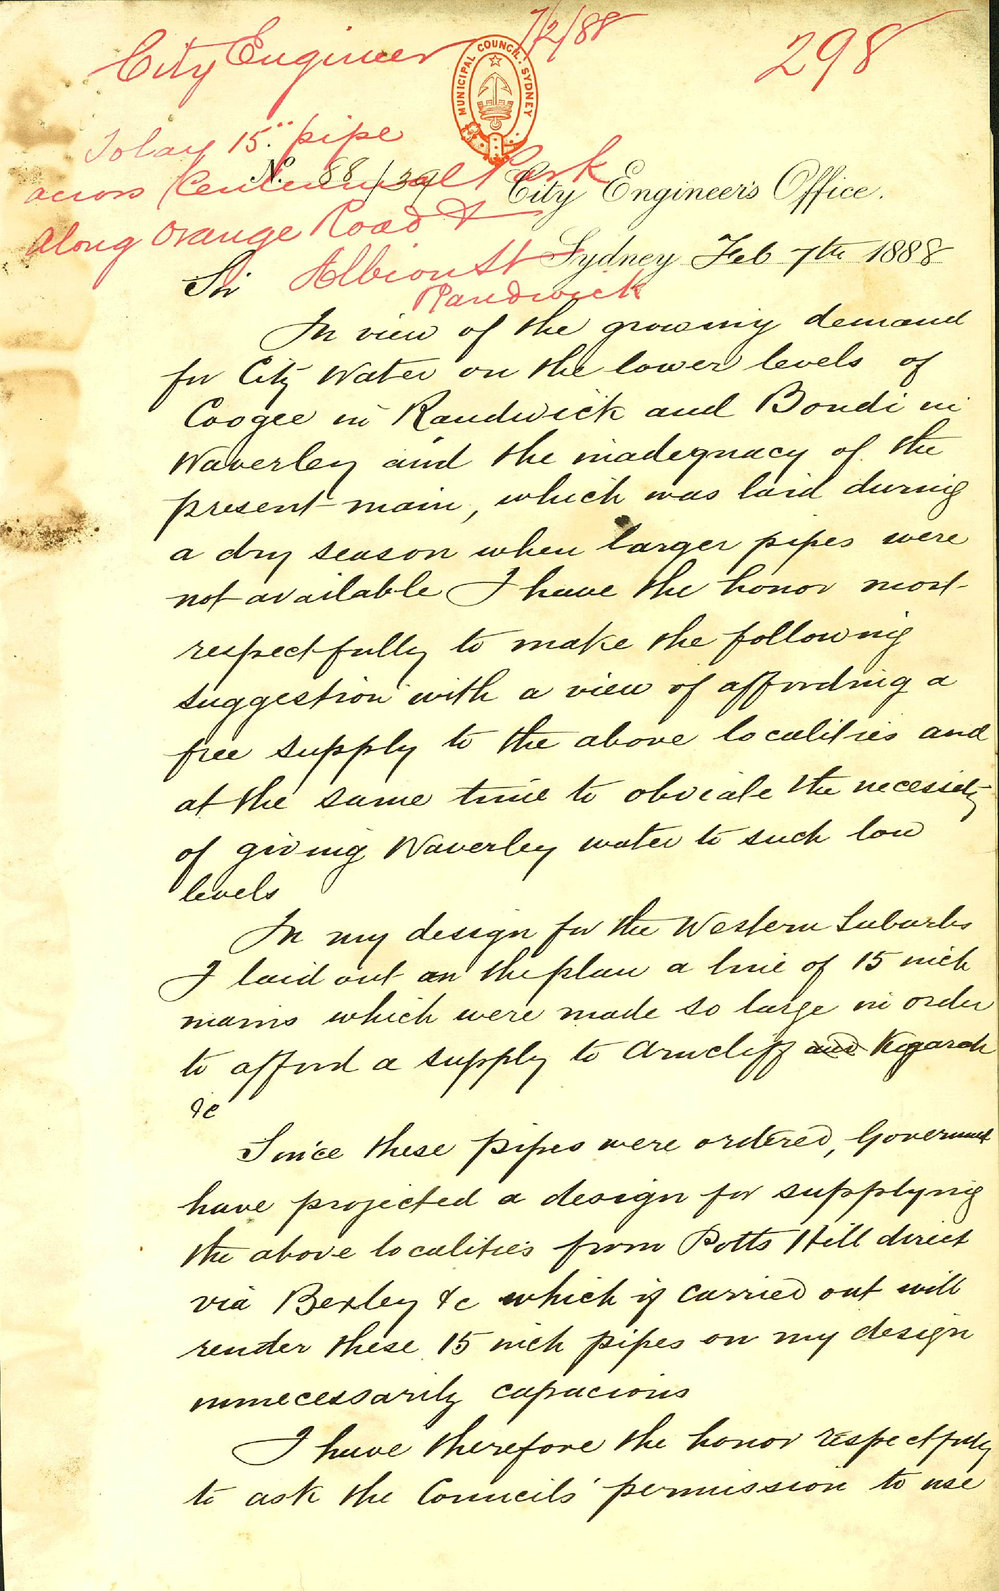 City Engineer 7/2/88
298
MUNICIPAL COUNCIL SYDNEY
To lay 15" pipe
across Centennial Park
along Orange Road &
Albion St
Randwick
No. 88/39
City Engineer's Office.
Sydney Feb 7th 1888
Sir
In view of the growing demand
for City Water on the lower levels of
Coogee in Randwick and Bondi in
Waverley and the inadequacy of the
present main, which was laid during
a dry season when larger pipes were
not available I have the honor most
respectfully to make the following
suggestion with a view of affording a
free supply to the above localities and
at the same time to obviate the necessity
of giving Waverley water to such low
levels
In my design for the Western Suburbs
I laid out on the plan a line of 15 inch
mains which were made so large in order
to afford a supply to Arncliff and Kogarah
&c
Since these pipes were ordered, Government
have projected a design for supplying
the above localities from Potts Hill direct
via Bexley &c which if carried out will
render these 15 inch pipes on my design
unnecessarily capacious
I have therefore the honor respectfully
to ask the Councils' permission to use